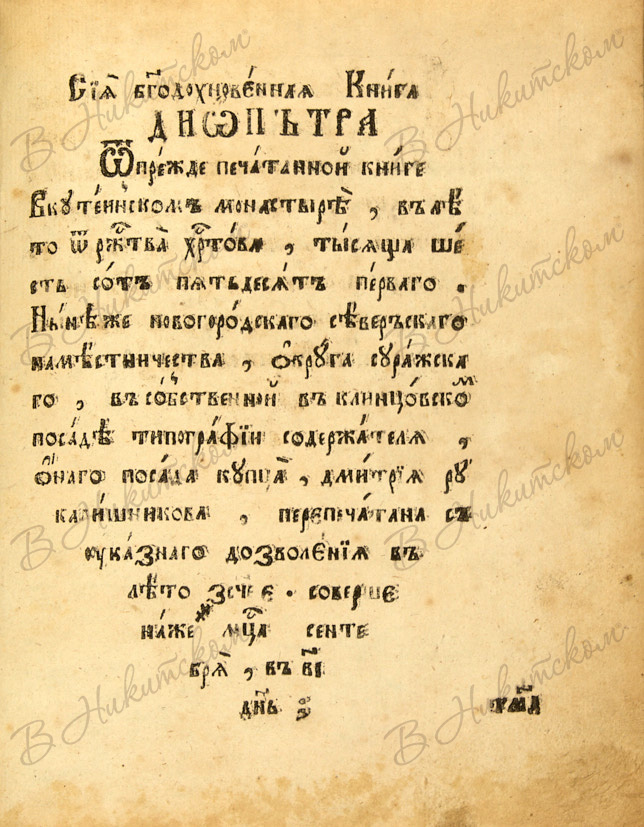 Сїѧ҄ бг҃одохнове́ннаѧ Кни́га
ДИѠПЪТРА
Ѿпре́жде печа́таннои҆ кни́ге
Вкутеи́нскомъ монасты́рѣ , въ лѣ́
то ѿ рж҃тва̀ хр҃то́ва , ты́сѧща ше́
сть со́тъ пѧтьдесѧ́тъ пе́рваго .
Ны́нѣже новогоро́дскаго сѣ́веръскаго
намѣ́стничества , о҆кру́га сура́жска
го , въ со́бственнои҆ въ клинцо́вско
посадѣ̀ типогра́фїи содержа́телѧ ,
о҆́наго поса́да купца̀ , дми́трїѧ ру
кави́шникова , перепеча́тана съ
оука́знаго дозволе́нїѧ въ
лѣ́то ҂зсч҃є . соверше
на́же мц҃а сенте
брѧ̀ , въ в҃і
дн҃ь
В Никитском